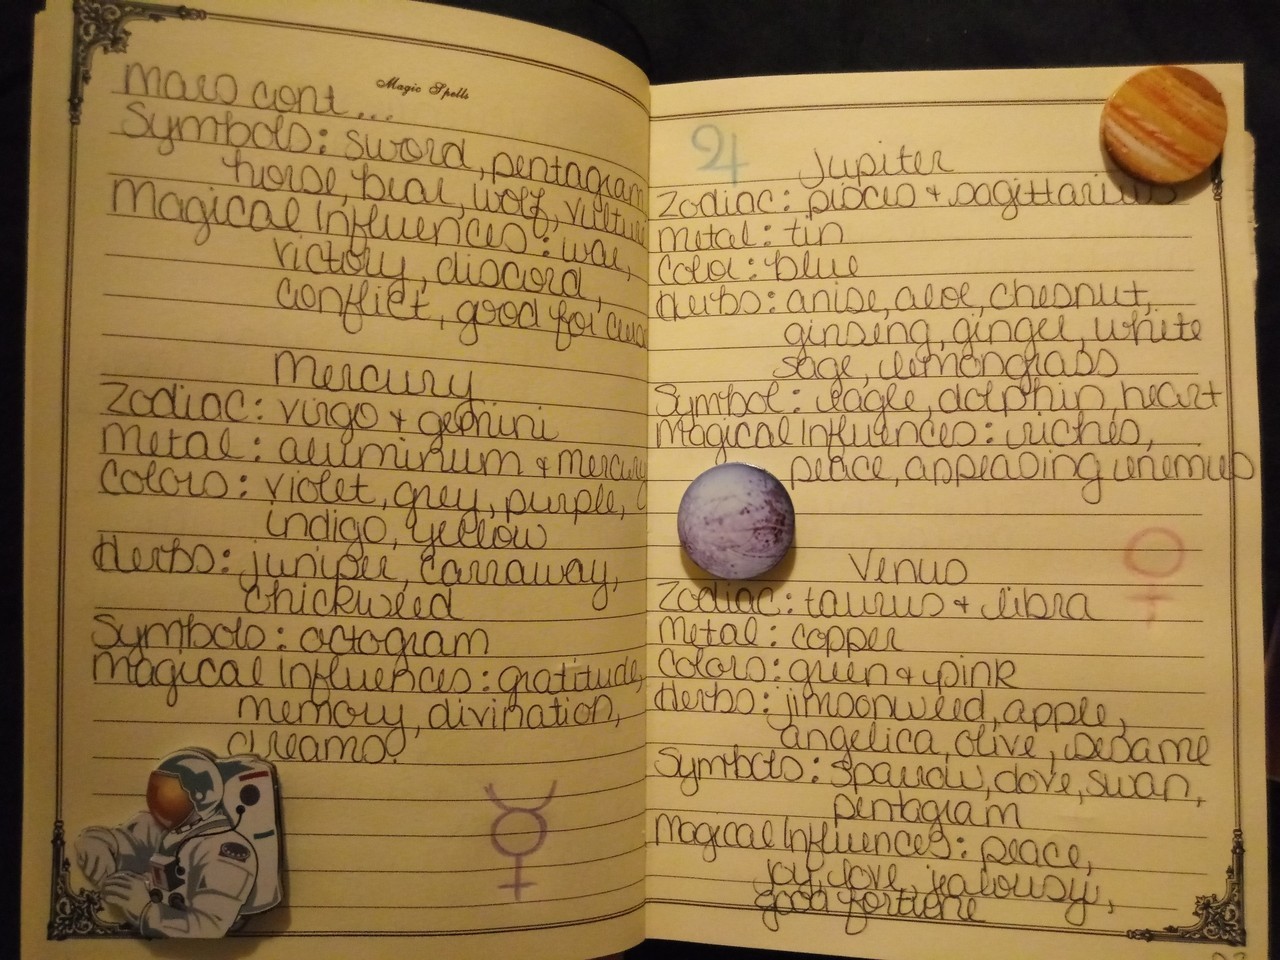 Magic Spells
Mars cont...
Symbols: sword, pentagram
horse, bear, wolf, vulture
Magical Influences: war,
victory, discord,
conflict, good for
Mercury
Zodiac: virgo + gemini
Metal: aluminum + mercury
Colors: violet, grey, purple,
indigo, yellow
Herbs: juniper, carraway,
chickweed
Symbols: octogram
Magical Influences: gratitude,
memory, divination,
dreams
☿
♃
Jupiter
Zodiac: pisces + sagittarius
Metal: tin
Color: blue
Herbs: anise, aloe, chesnut,
ginseng, ginger, white
sage, lemongrass
Symbol: eagle, dolphin, heart
Magical Influences: riches,
peace, appeasing enemies
♀
Venus
Zodiac: taurus + libra
Metal: copper
Colors: green + pink
Herbs: jimsonweed, apple,
angelica, olive, sesame
Symbols: sparrow, dove, swan,
pentagram
Magical Influences: peace,
joy, love, jealousy,
good fortune